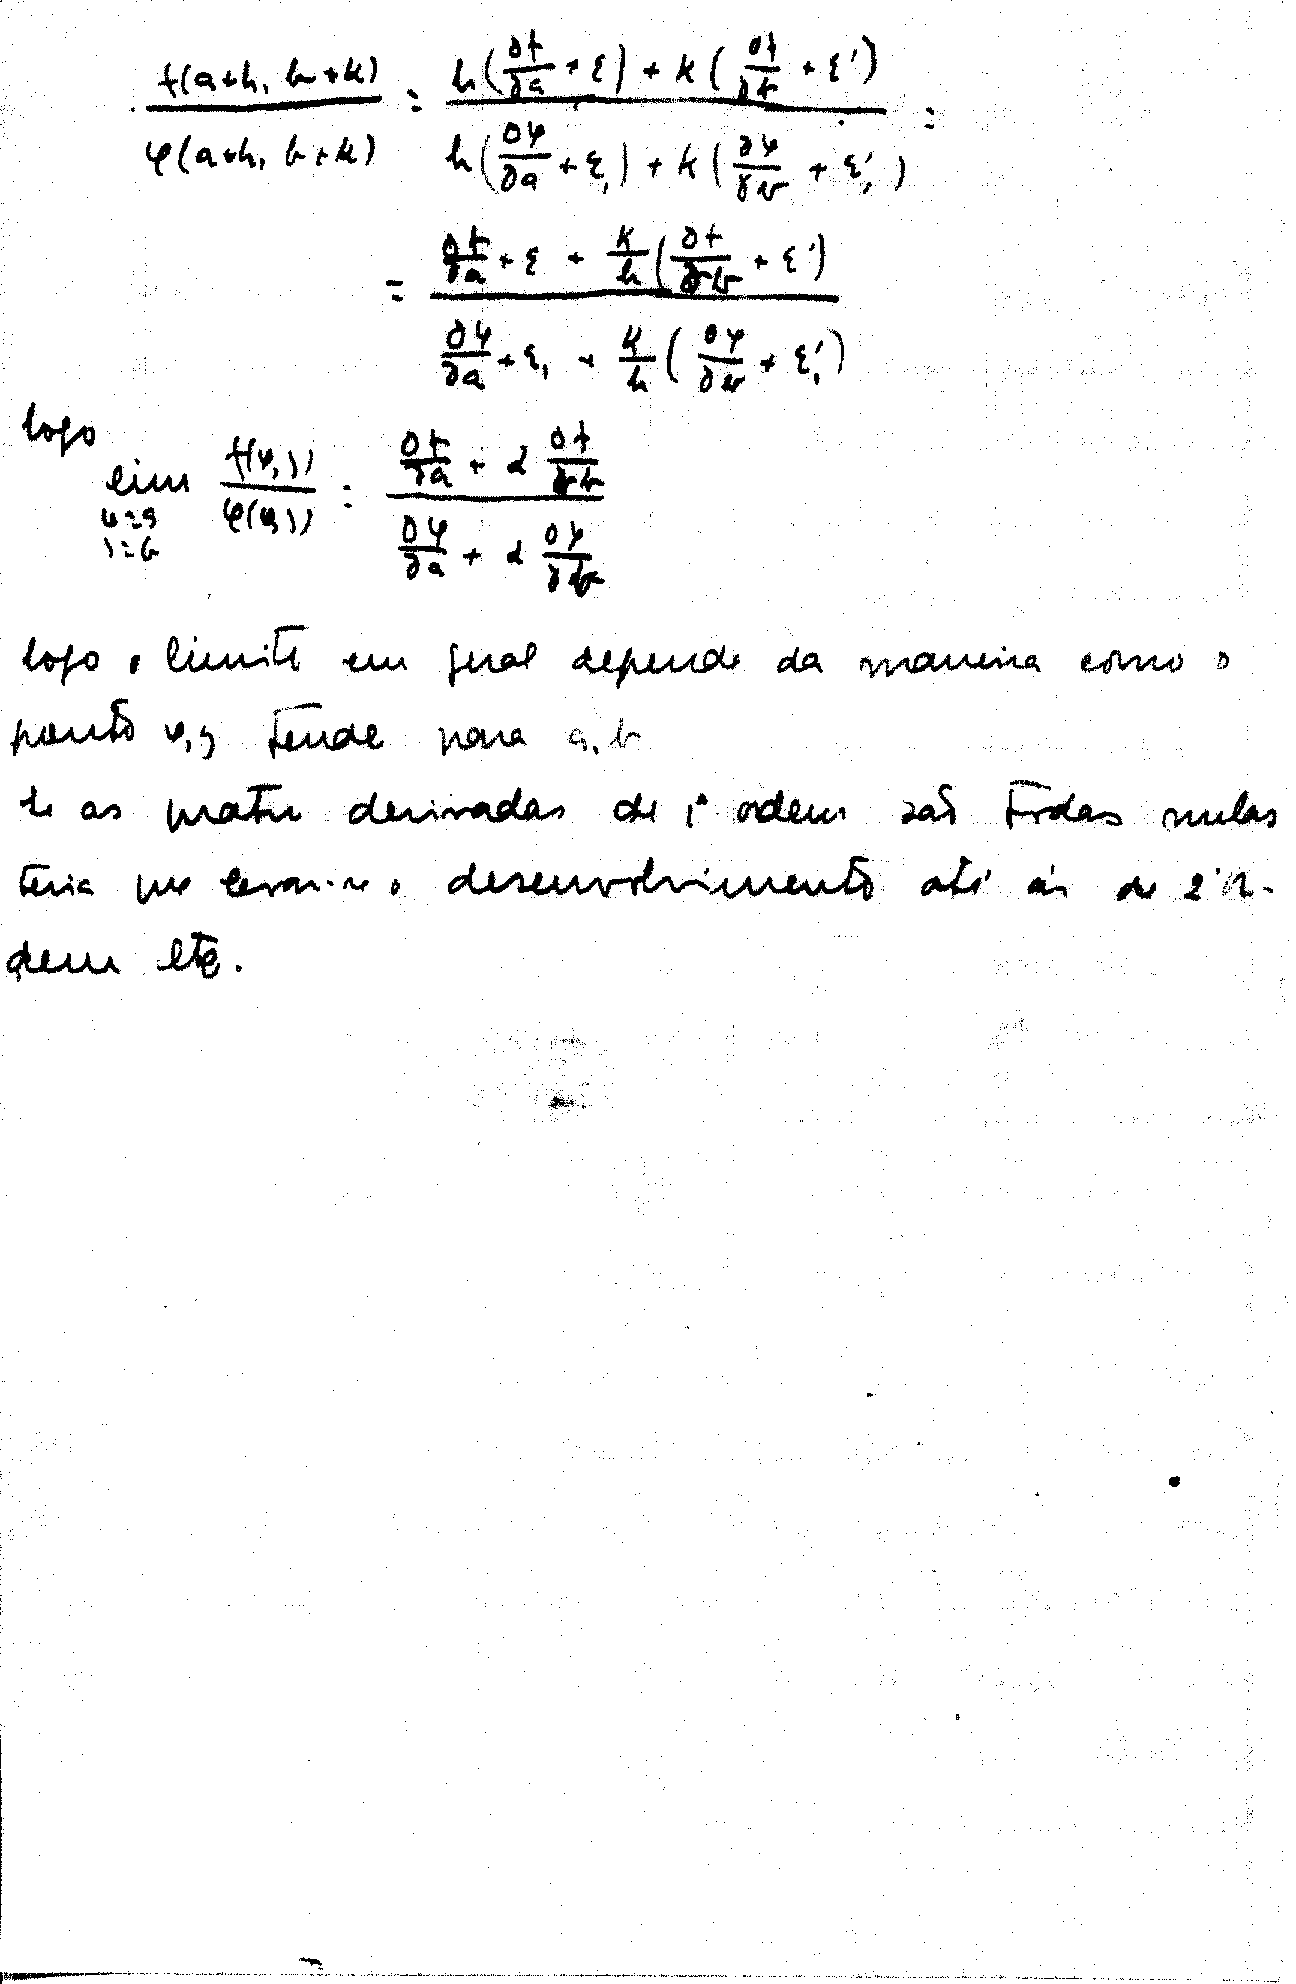 f(a+h, b+k) / φ(a+h, b+k) = [h(∂f/∂a + ε) + k(∂f/∂b + ε')] / [h(∂φ/∂a + ε₁) + k(∂φ/∂b + ε₁')] =
= [∂f/∂a + ε + k/h (∂f/∂b + ε')] / [∂φ/∂a + ε₁ + k/h (∂φ/∂b + ε₁')]
logo
lim x=a y=b f(x,y) / φ(x,y) = [∂f/∂a + α ∂f/∂b] / [∂φ/∂a + α ∂φ/∂b]
logo o limite em geral depende da maneira como o
ponto x,y tende para a,b
Se as quatro derivadas de 1ª ordem são todas nulas
teria que levar-se o desenvolvimento até às de 2ª or-
dem etc.